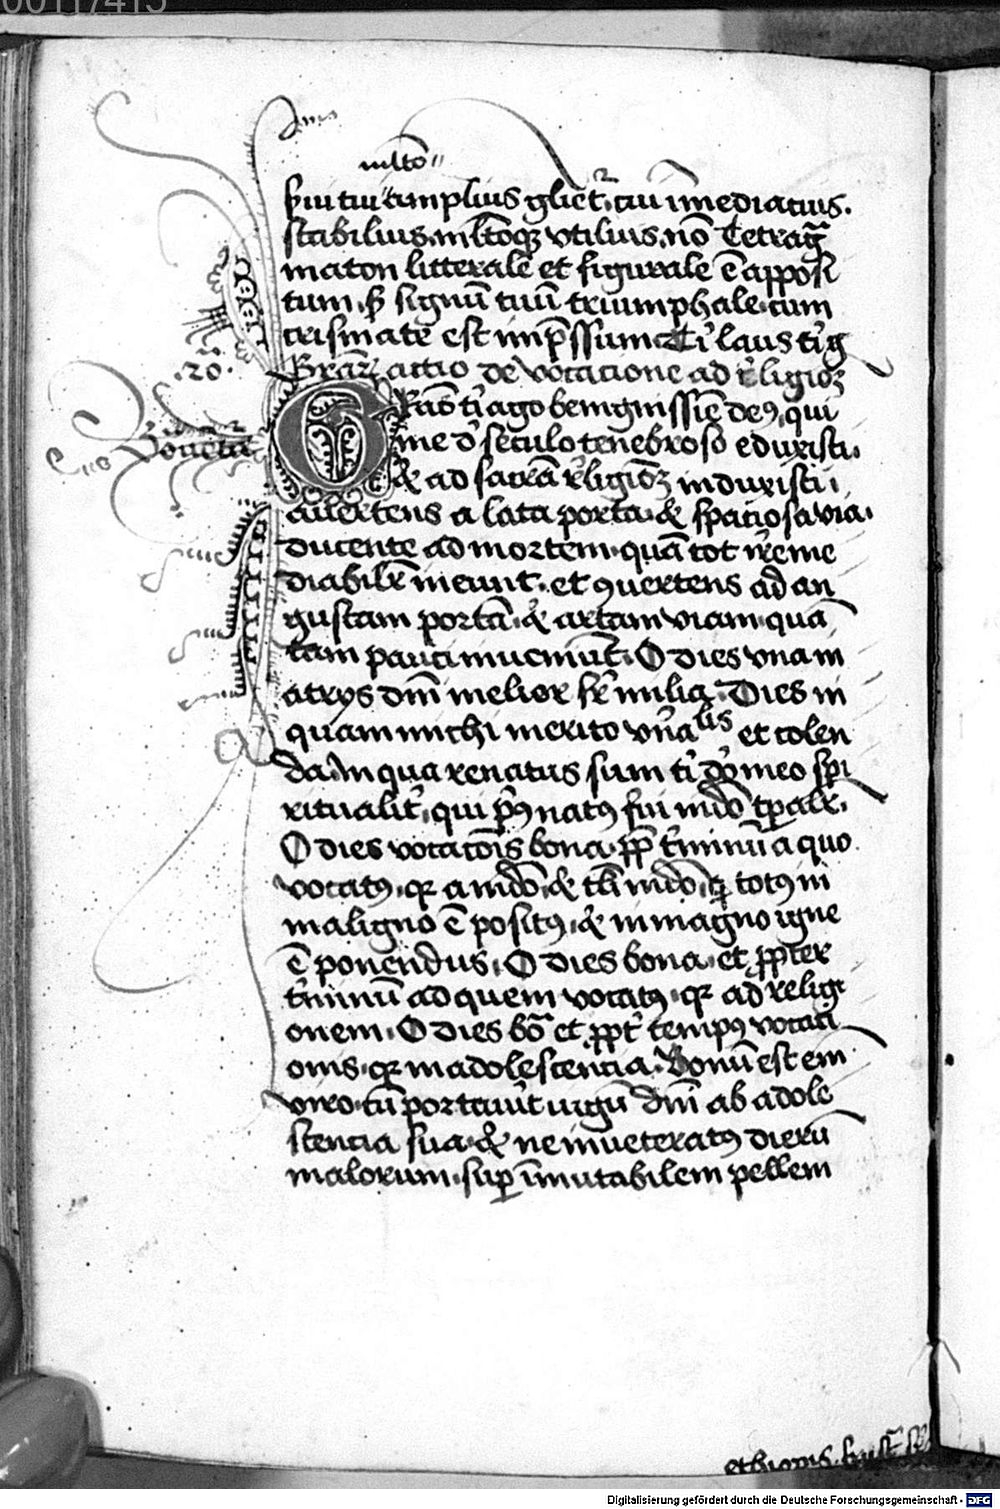 00117415
mlto
serui tui amplius gliet᷑ cui īmediatius.
stabilius mltoqꝫ vtilius nō Tetrag̃
maton litterale et figurale ē apposi
tum sꝫ signū tuū triumphale cum
crismate est imp̄ssum Ti laus ti g
Grār̃ actio de vocatione ad r̃ligioꝫ
GRaō ti ago benignissīe deꝰ qui
me d̾ seculo tenebroso eduxisti.
& ad sacrā r̃ligioꝫ induxisti
auertens a lata porta & spatiosa via.
ducente ad mortem quā tot irreme
diabilr̃ ineunt. et ꝯuertens ad an
gustam portā & artam viam quā
tam pauci inueniūt. O dies vna in
atrijs dnī melior sr̃ milia. Dies in
quam michi merito vn̾alis et colen
da in qua renatus sum ti do meo spi
ritualit̾ qui p̾ꝰ natꝰ fui mdo tꝑalr̃.
O dies vocatōis bona ꝓp̄ t̾minū a quo
vocatꝰ qꝛ a mdo & tm̄ mdo q totꝰ in
maligno ē positꝰ & in magno igne
ē ponendus. O dies bona et ꝓpter
t̾minū ad quem vocatꝰ qꝛ ad religi
onem. O dies bo᷑ et ꝓpt̾ tempꝰ vocati
onis qꝛ in adolescentia. Bonū est em̄
viro cū portauit iugū dnī ab adole
scentia sua & ne inueteratꝰ dierū
malorum sup īmutabilem pellem
.20.
ethiopis
Digitalisierung gefördert durch die Deutsche Forschungsgemeinschaft - DFG